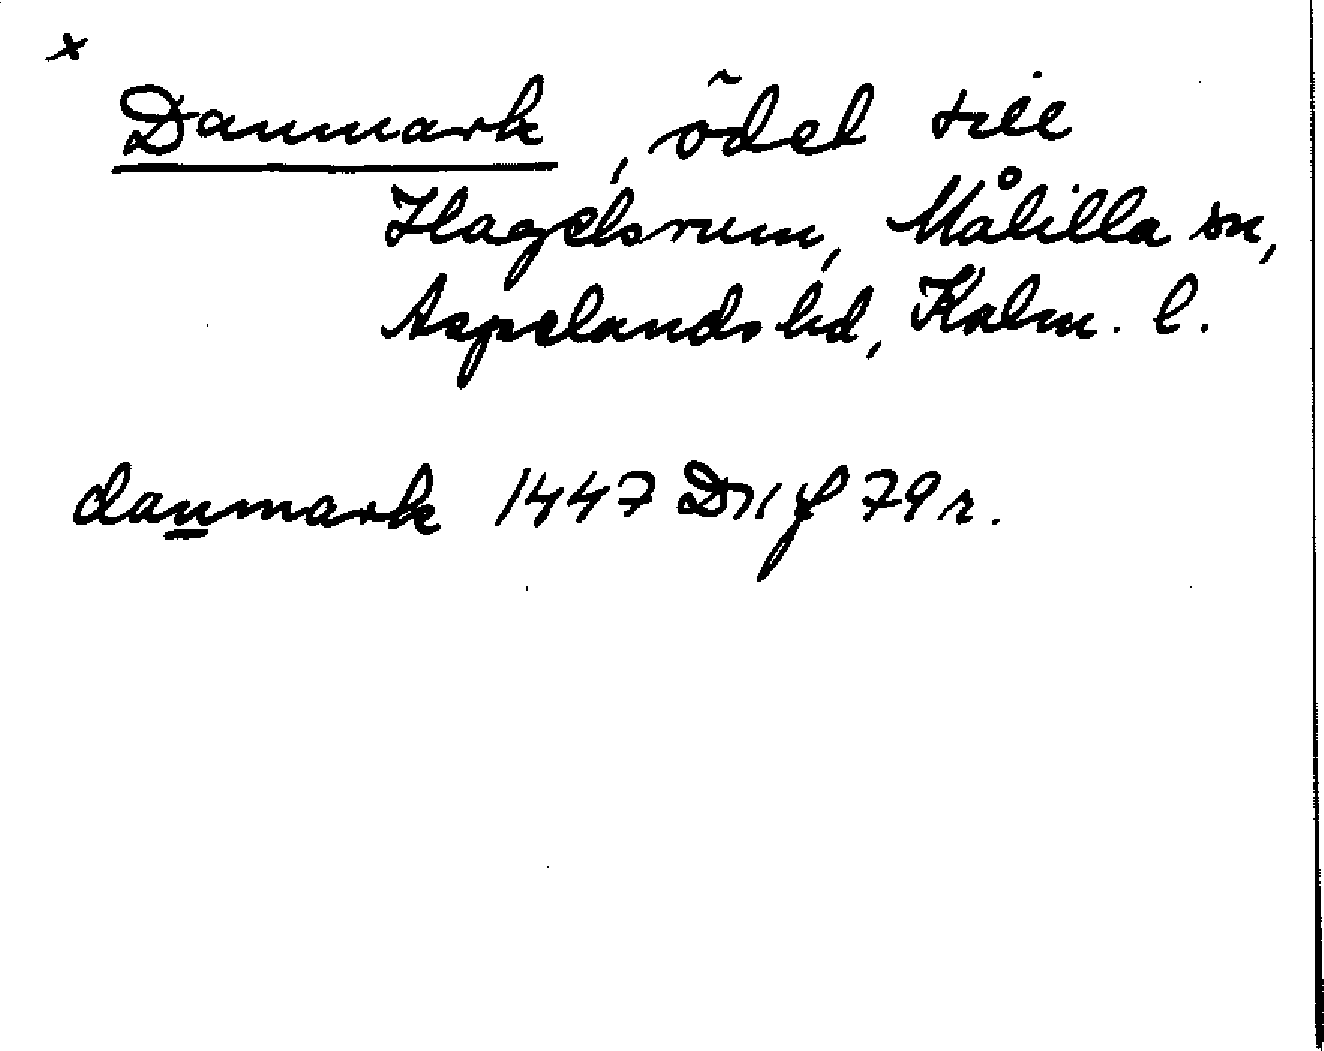 x
Danmark, ödel till
Hagelsrum, Målilla sn,
Aspelands hd, Kalm. l.
danmark 1447 D11 f 79 r.